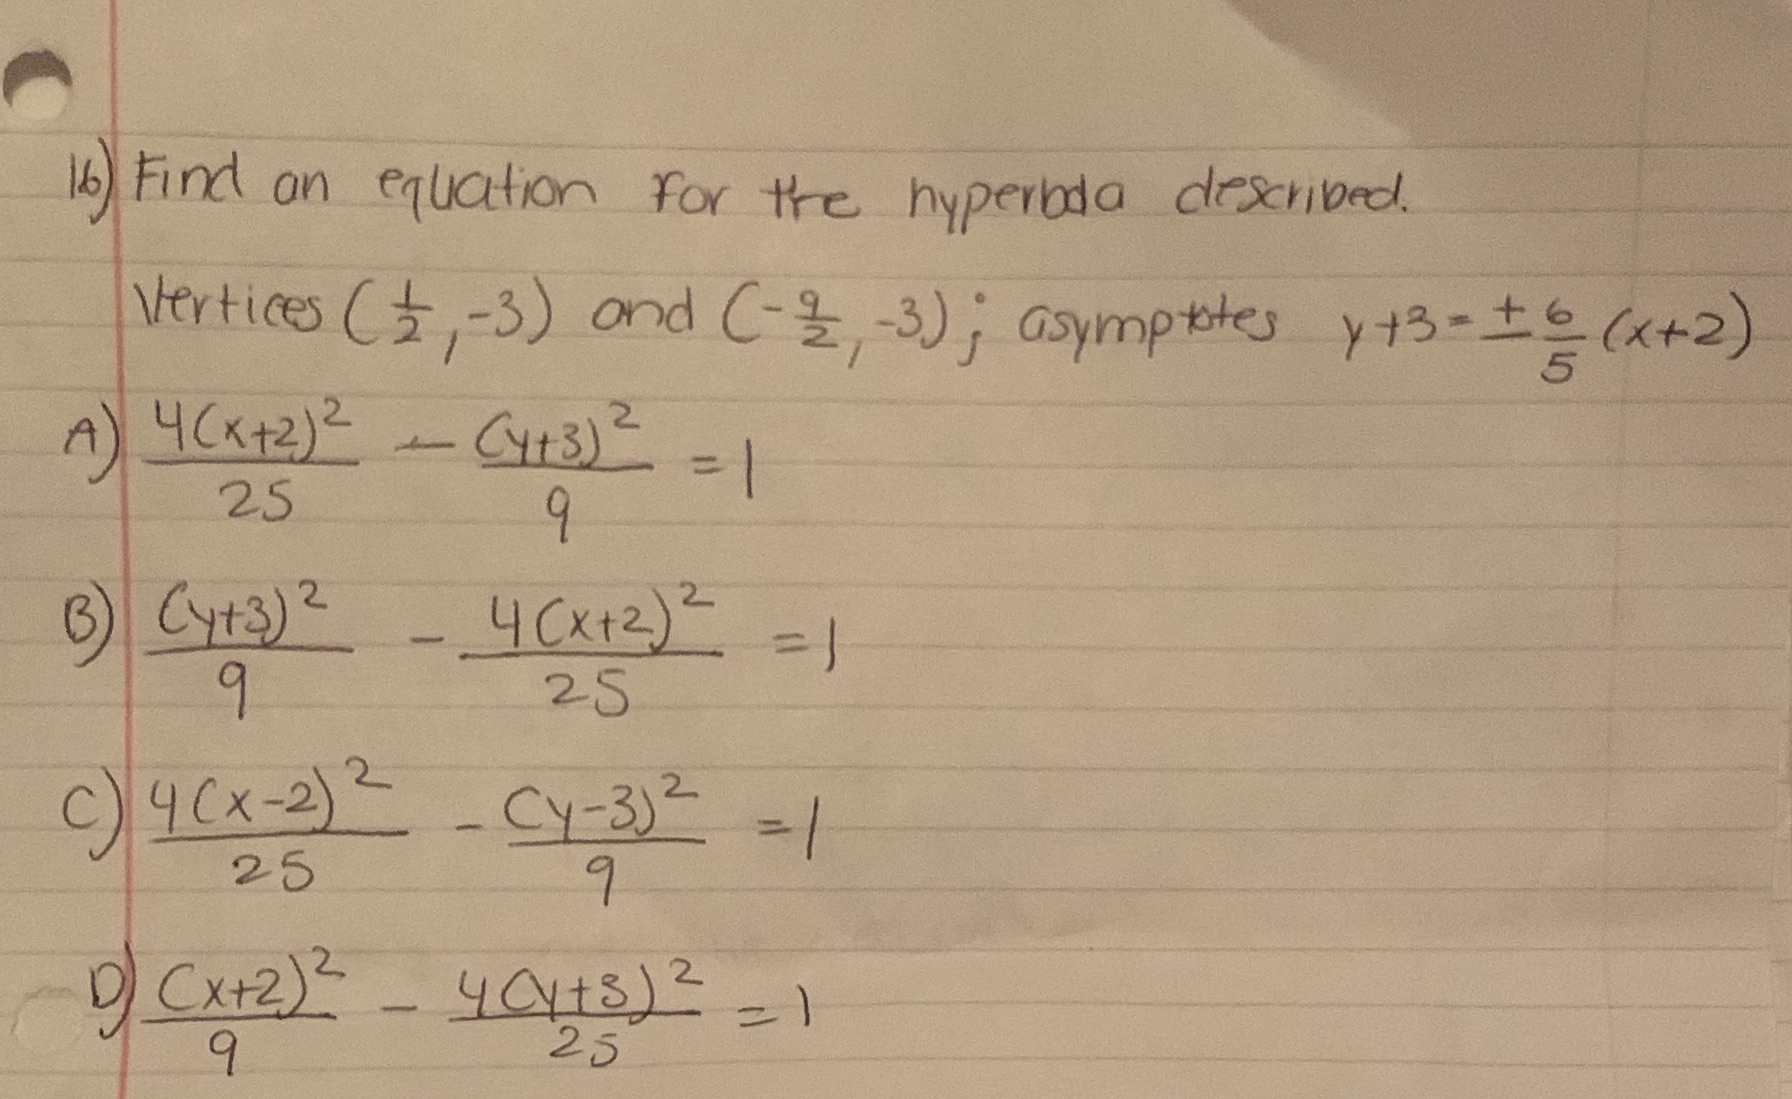 16) Find an equation for the hyperbola described.
Vertices (1/2, -3) and (-9/2, -3); asymptotes y+3 = ± 6/5 (x+2)
A) 4(x+2)²/25 - (y+3)²/9 = 1
B) (y+3)²/9 - 4(x+2)²/25 = 1
C) 4(x-2)²/25 - (y-3)²/9 = 1
D) (x+2)²/9 - 4(y+3)²/25 = 1